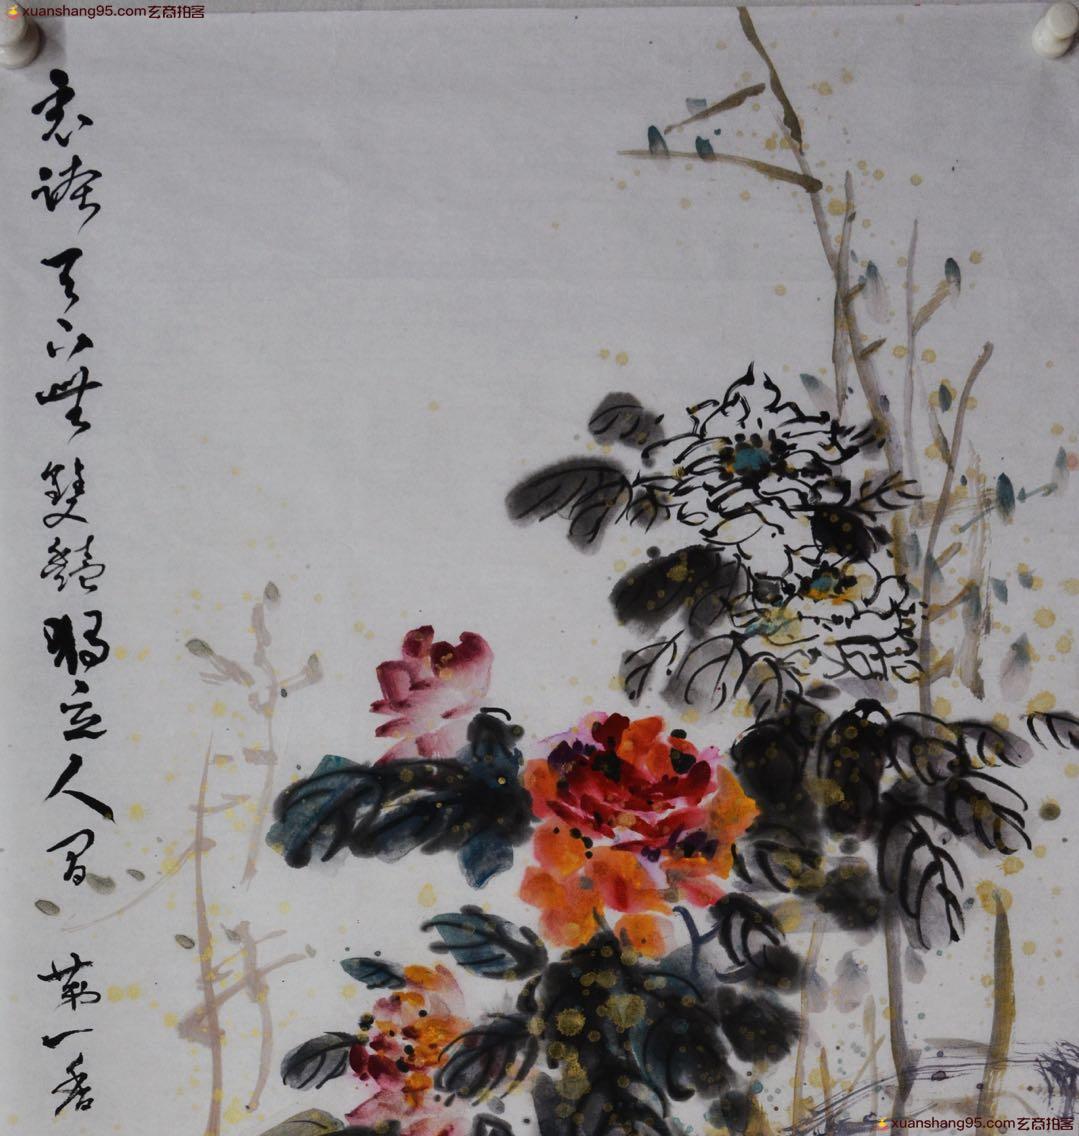 xuanshang95.com玄商拍客
竞誇天下無雙艷獨立人間第一香
xuanshang95.com玄商拍客